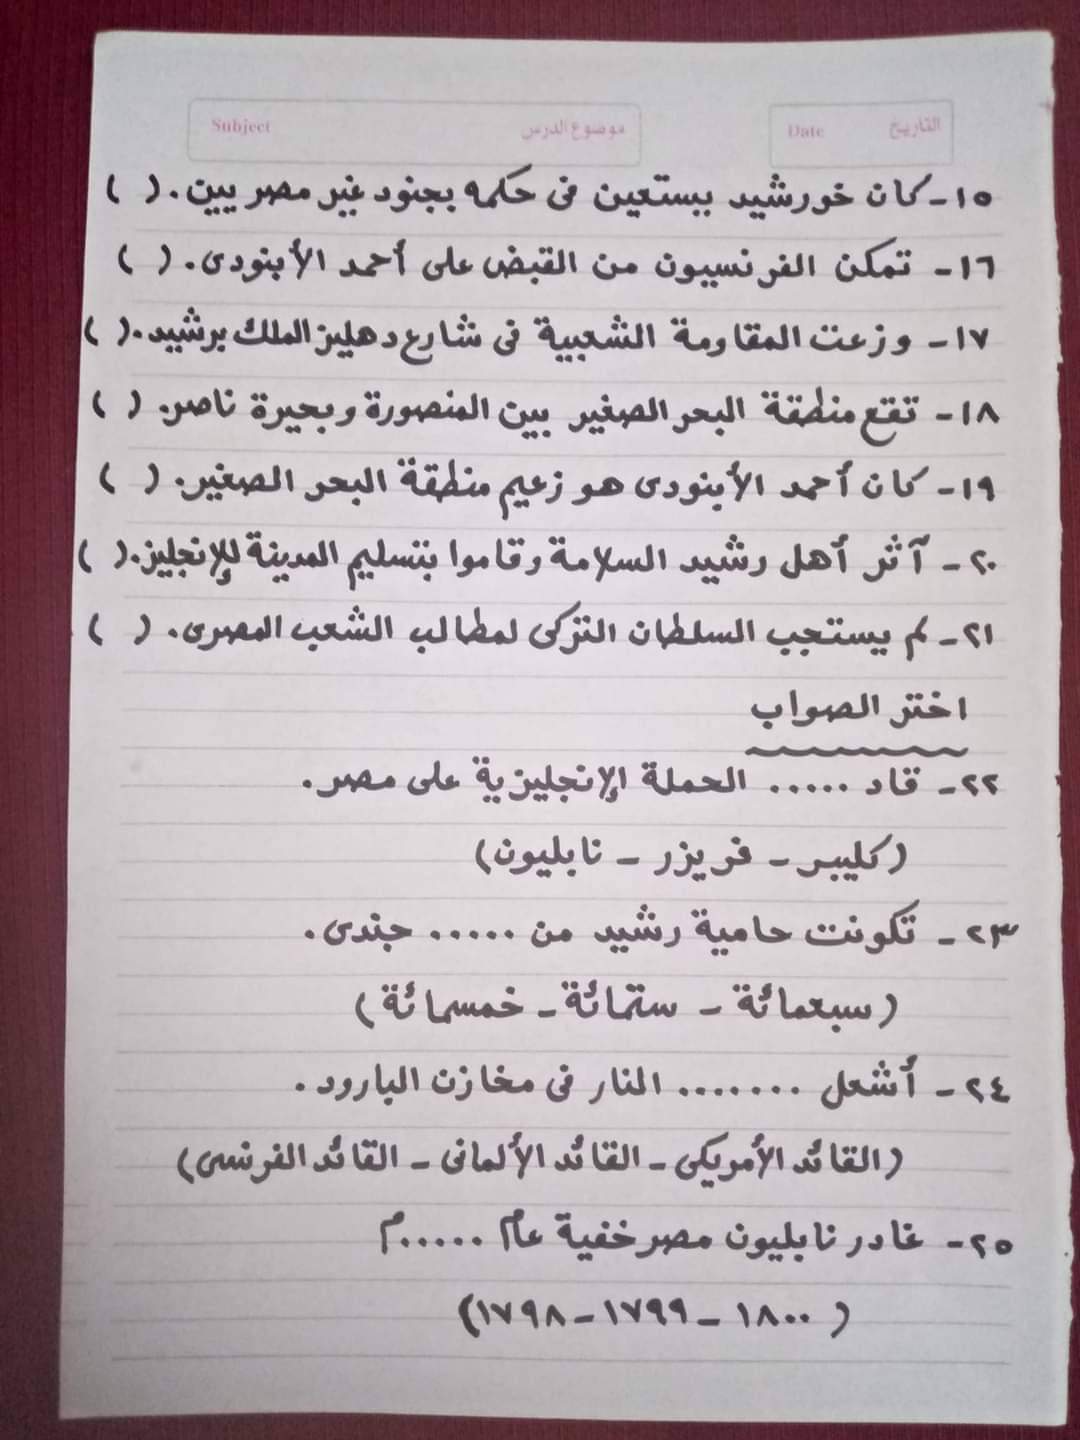 Subject موضوع الدرس Date التاريخ
١٥- كان خورشيد يستعين فى حكمه بجنود غير مصريين. ( )
١٦- تمكن الفرنسيون من القبض على أحمد الأبنودى. ( )
١٧- وزعت المقاومة الشعبية فى شارع دهليز الملك برشيد. ( )
١٨- تقع منطقة البحر الصغير بين المنصورة وبحيرة ناصر. ( )
١٩- كان أحمد الأبنودى هو زعيم منطقة البحر الصغير. ( )
٢٠- آثر أهل رشيد السلامة وقاموا بتسليم المدينة للإنجليز. ( )
٢١- لم يستجب السلطان التركى لمطالب الشعب المصرى. ( )
اختر الصواب
٢٢- قاد ..... الحملة الإنجليزية على مصر.
(كليبر - فريزر - نابليون)
٢٣- تكونت حامية رشيد من ..... جندى.
(سبعمائة - ستمائة - خمسمائة)
٢٤- أشعل ....... النار فى مخازن البارود.
(القائد الأمريكى - القائد الألمانى - القائد الفرنسى)
٢٥- غادر نابليون مصر خفية عام .....م
(١٨٠٠ - ١٧٩٩ - ١٧٩٨)